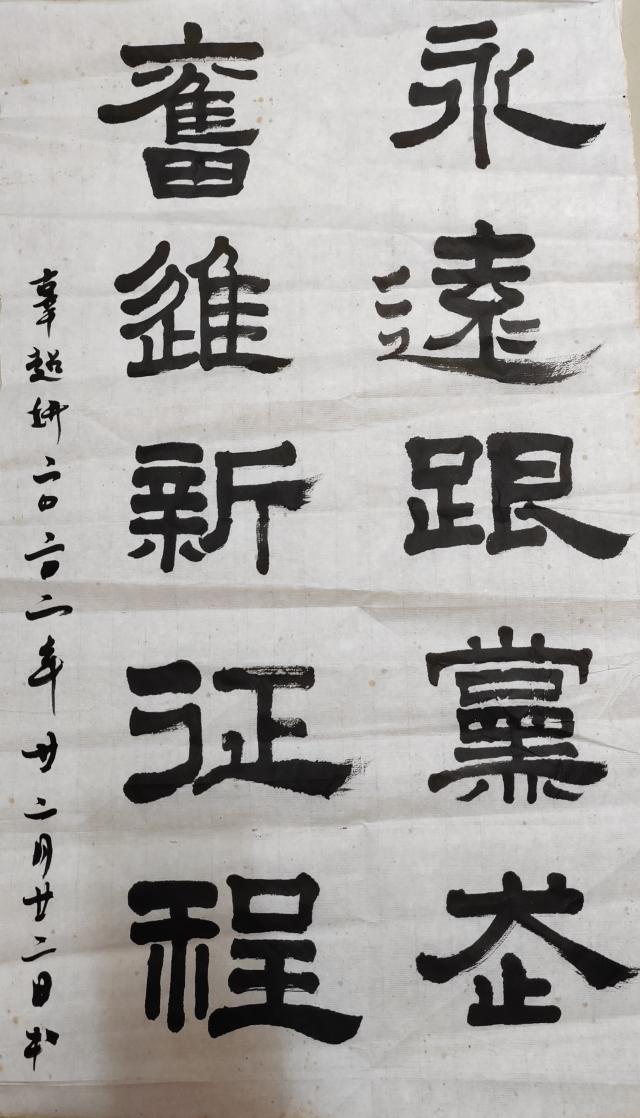 永遠跟黨走
奮進新征程
辜超妍二〇二〇二年廿二月廿二日书